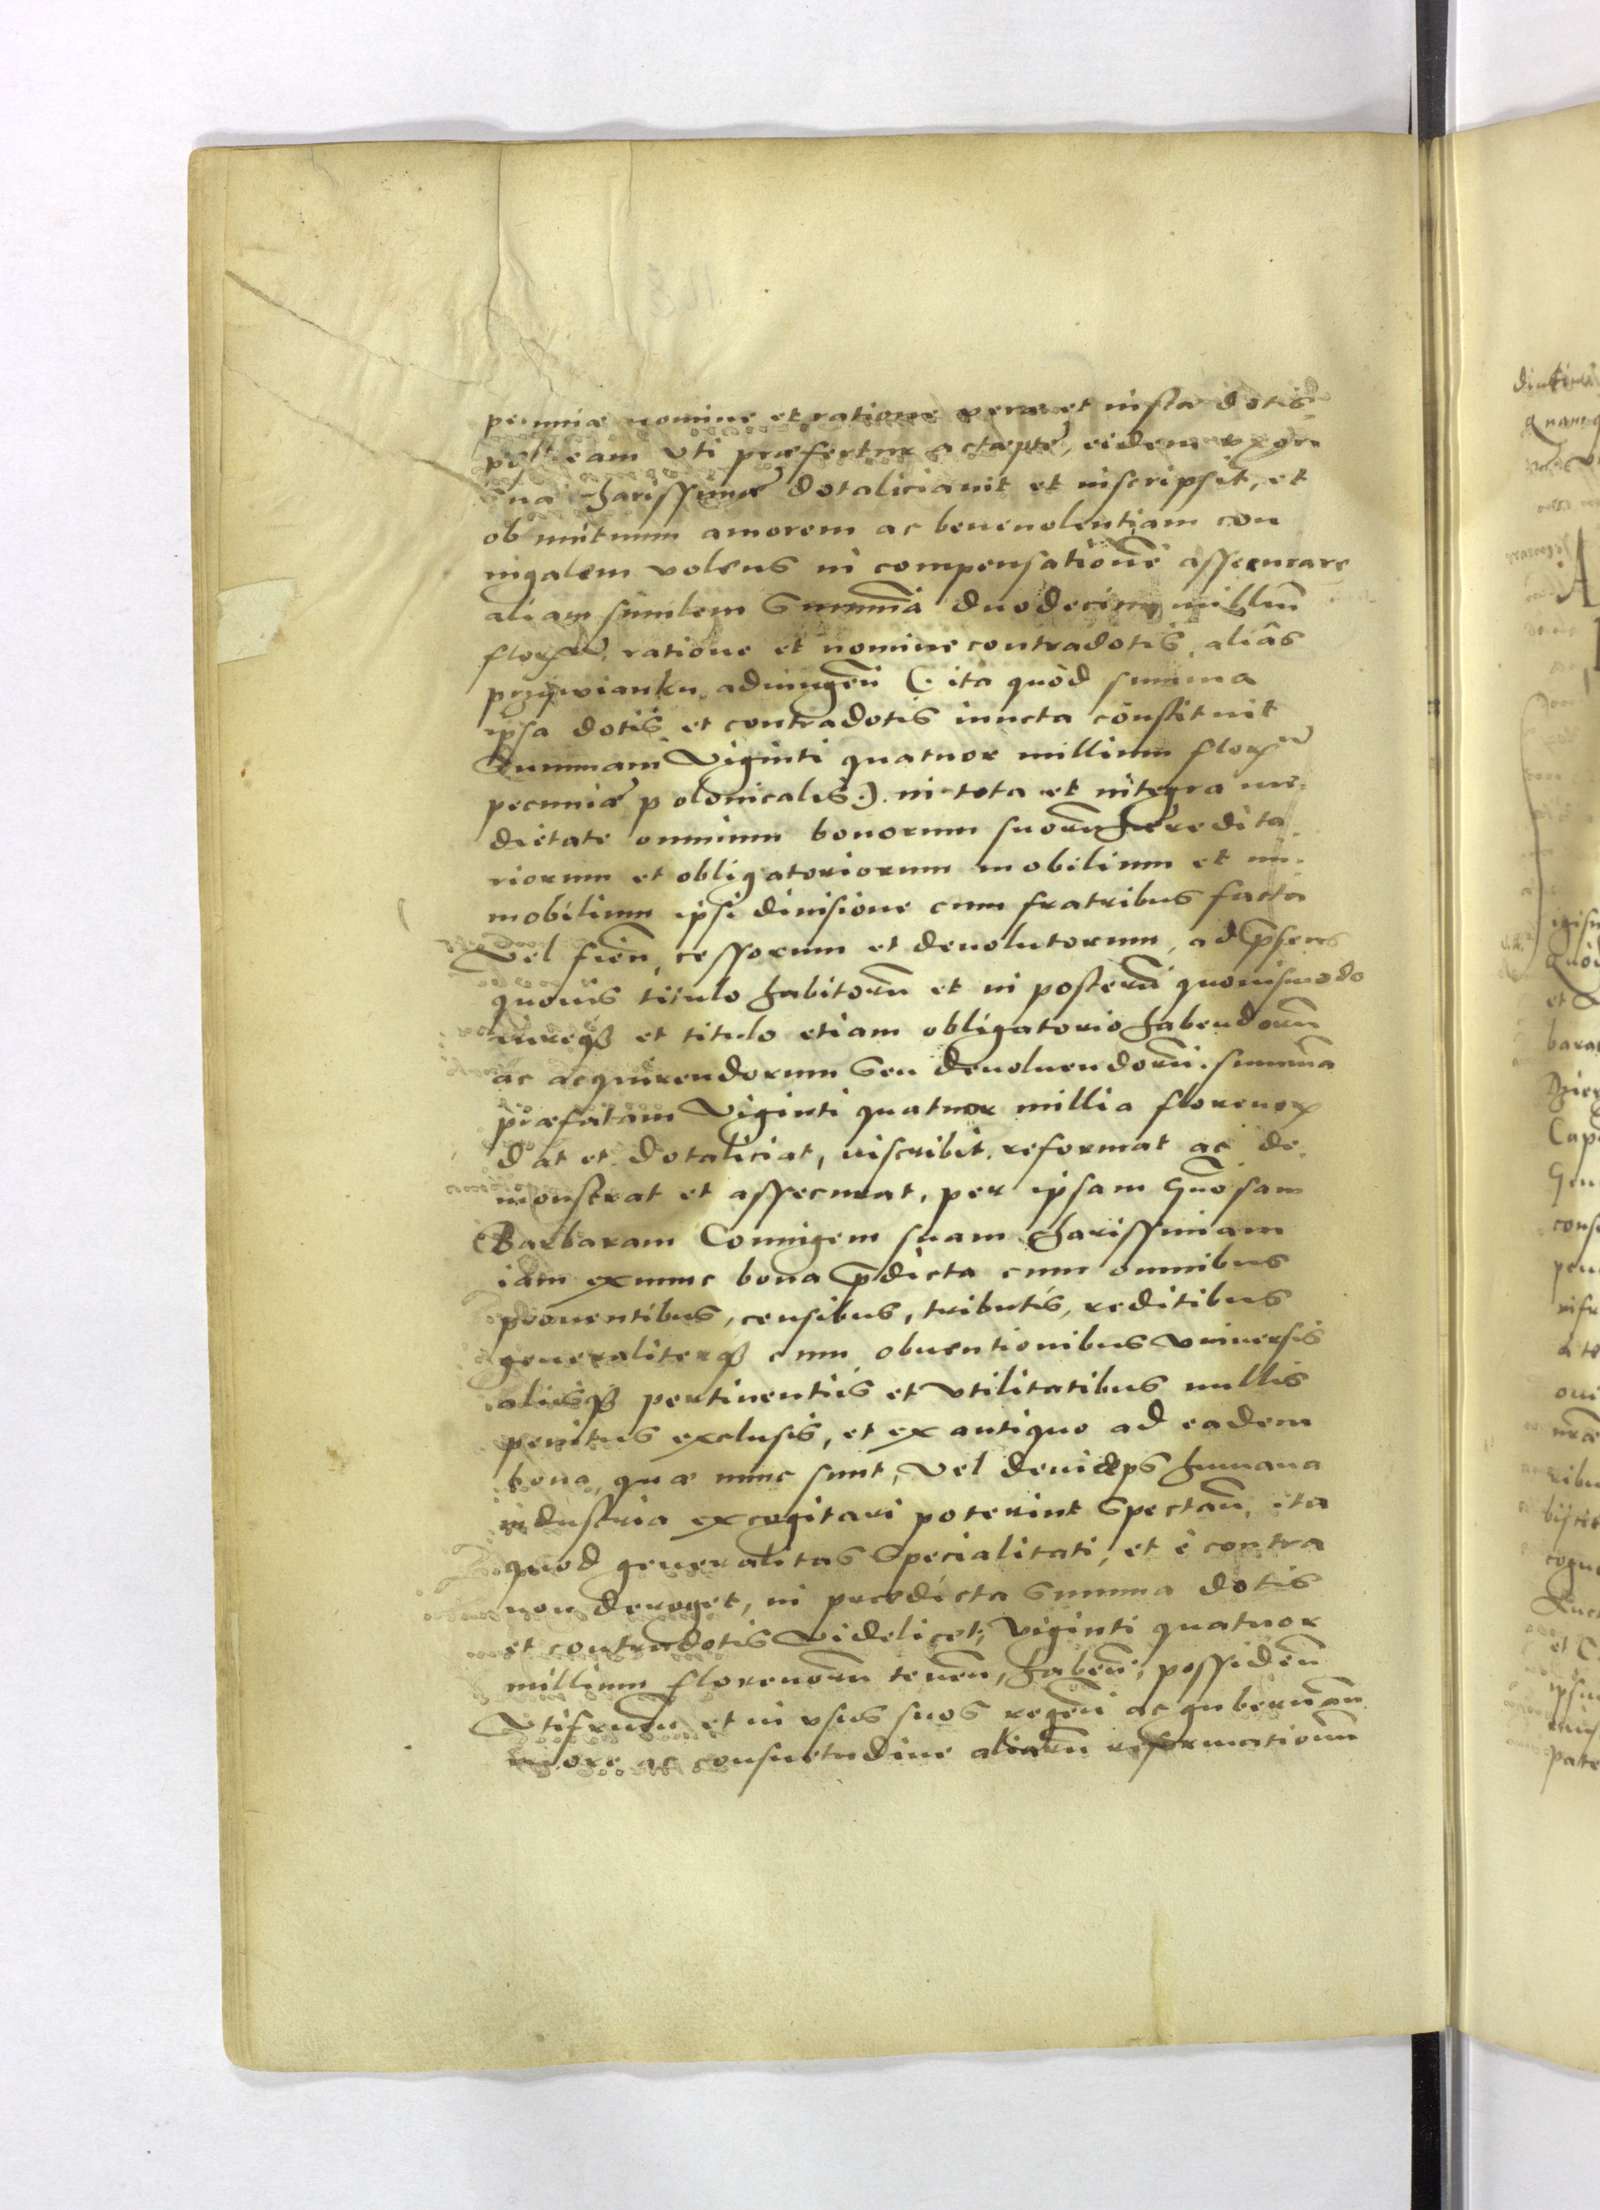 pecuniæ nomine et ratione veræ et iusta dotis
p eam vti præfertur acceptæ, eidem vxori
suæ charissimæ dotaliciauit et inscripsit, et
ob mutuum amorem ac beneuolentiam con
iugalem volens in compensationē assecurare
aliam similem Summā duodecim milliū
florenorū ratione et nomine contradotis, aliâs
przywianku adiungeñ (: ita quòd summa
ipsa dotis et contradotis iuncta constituit
Summam Viginti quatuor millium florenorū
pecuniæ polonicalis :). in tota et integra me-
dietate omnium bonorum suorū heredita
riorum et obligatoriorum mobilium et im-
mobilium ipsi diuisione cum fratribus facta
Vel fieñ, cessorum et deuolutorum, ad p̄sens
quouis titulo habitorū et in posterū quouismodo
iureq3 et titulo etiam obligatorio habendorū
ac acquirendorum Seu deuoluendorū. summā
præfatam Viginti quatuor millia florenorū
dat et dotaliciat, inscribit, reformat ac de-
monstrat et assecurat, per ipsam Gñosam
Barbaram Coniugem suam charissimam
iam exnunc bona p̄dicta cum omnibus
prouentibus, censibus, tributis, reditibus
generaliterq3 cum obuentionibus vniuersis
alijsq3 pertinentiis et vtilitatibus nullis
penitus exclusis, et ex antiquo ad eadem
bona, quæ nunc sunt, Vel deinceps humana
industria excogitari poterint Spectañ, ita
quod generalitas Specialitati, et è contra
non deroget, in predicta Summa dotis
et contradotis Videlicet, Viginti quatuor
millium florenorū teneñ, habeñ, possideñ
Vtifrueñ et in vsus suos regeñ ac gubernañ
more ac consuetudine aliarū reformationū